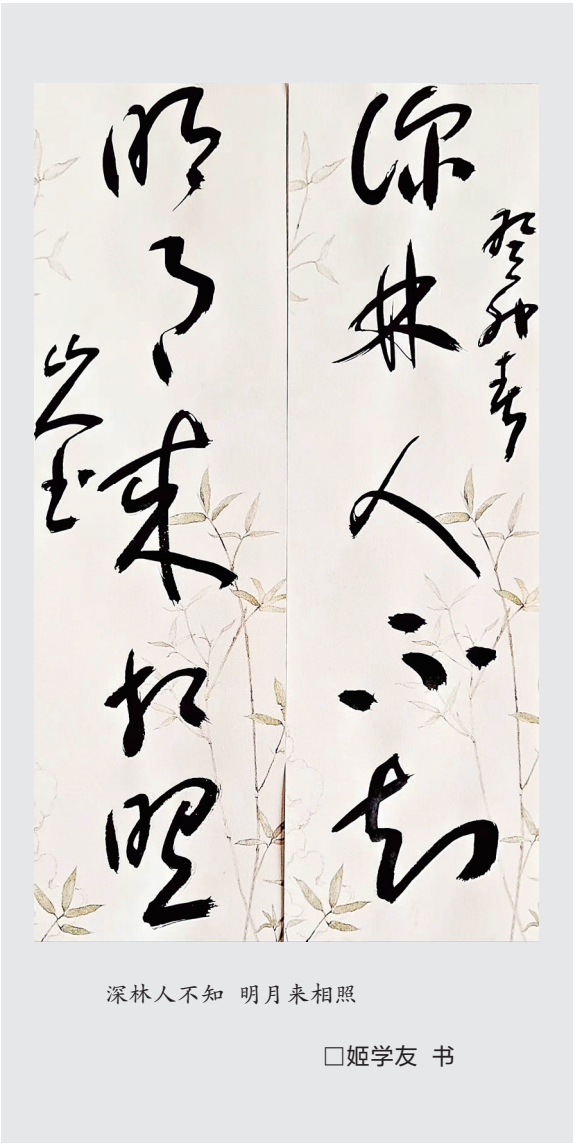 癸卯春
深林人不知
明月来相照
深林人不知 明月来相照
□姬学友 书